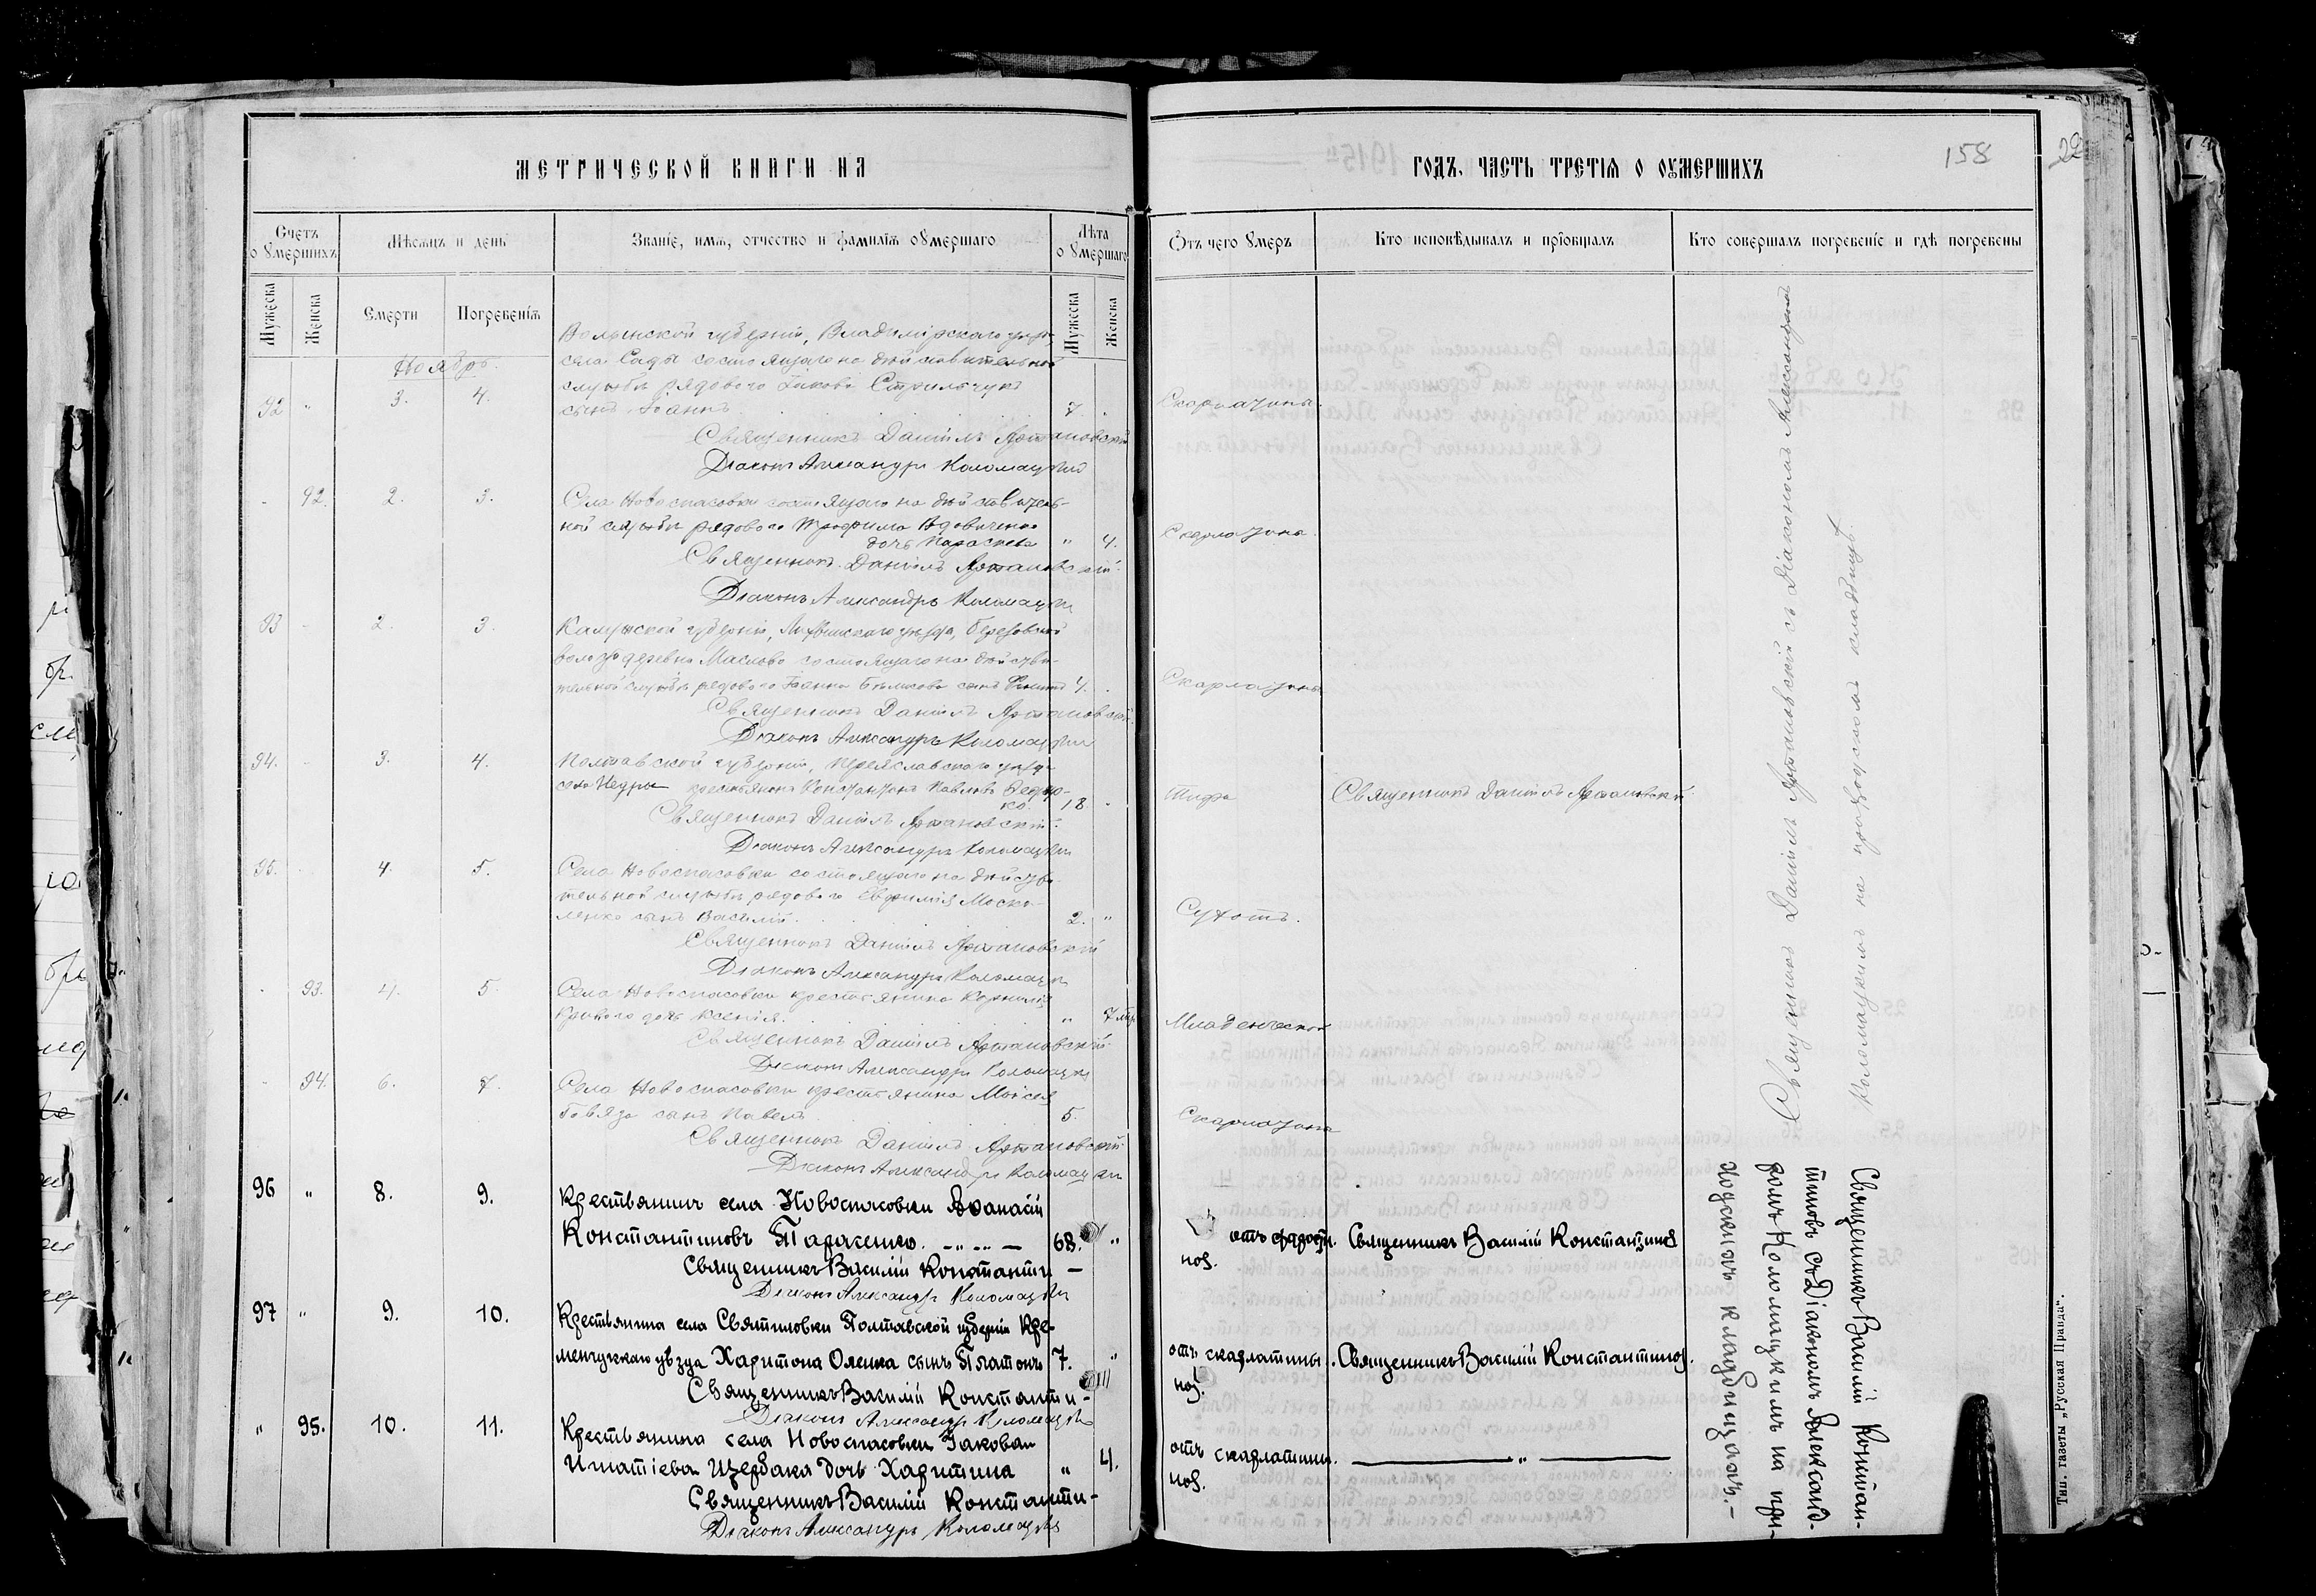 МЕТРИЧЕСКОЙ КНИГИ НА
ГОДЪ, ЧАСТЬ ТРЕТІЯ О ОУМЕРШИХЪ
158
Счетъ о умершихъ
Мѣсяцъ и день
Званіе, имя, отчество и фамилія оумершаго
Лѣта оумершаго
Отъ чего умеръ
Кто исповѣдывалъ и пріобщалъ
Кто совершалъ погребеніе и гдѣ погребены
Мужеска
Женска
Смерти
Погребенія
Мужеска
Женска
Ноябрь.
Волынской губерніи, Владимірскаго уѣзда
села Сады состоящаго на дѣйствительной
службѣ рядового Іакова Стрильчукъ
92 " 3. 4. сынъ Іоаннъ 7. Скарлатина.
Священникъ Даніилъ Артановскій
Діаконъ Александръ Коломацкій
- 92. 2. 3. Села Новоспасовки состоящаго на дѣйствитель-
ной службѣ рядового Трофима Вдовиченко
дочь Параскева " 4. Скарлатина.
Священникъ Даніилъ Артановскій
Діаконъ Александръ Коломацкій
93 - 2. 3. Калужской губерніи, Лихвинскаго уѣзда, Березовской
волости деревни Маслово состоящаго на дѣйстви-
тельной службѣ рядового Іоанна сынъ 4. Скарлатина
Священникъ Даніилъ Артановскій
Діаконъ Александръ Коломацкій
94. - 3. 4. Полтавской губерніи, Переяславскаго уѣзда
села Недры крестьянинъ Константинъ Павловъ Федор-
ко. 18 Тифа Священникъ Даніилъ Артановскій
Священникъ Даніилъ Артановскій.
Діаконъ Александръ Коломацкій
95. 4. 5. Села Новоспасовки состоящаго на дѣйстви-
тельной службѣ рядового Евфимія Моска-
ленко сынъ Василій. 2. " Сухотъ.
Священникъ Даніилъ Артановскій
Діаконъ Александръ Коломацкій
- 93. 4. 5. Села Новоспасовки крестьянина Корнилія
Кривого дочь Ксенія. " 7 мѣс. Младенческой
Священникъ Даніилъ Артановскій.
Діаконъ Александръ Коломацкій
- 94. 6. 7. Села Новоспасовки крестьянина Моисея
сынъ Павелъ. 5. Скарлатина
Священникъ Даніилъ Артановскій.
Діаконъ Александръ Коломацкій
96 " 8. 9. Крестьянинъ села Новоспасовки Аѳанасій
Константиновъ Тарасенко. 68. " отъ старости. Священникъ Василій Константинов
Священникъ Василій Константи- нов.
Діаконъ Александръ Коломацкій
97 " 9. 10. Крестьянина села Святиловки Полтавской губерніи Кре-
менчугскаго уѣзда Харитона Оленка сынъ Платонъ 7. " отъ скарлатины. Священникъ Василій Константинов.
Священникъ Василій Константи- нов.
Діаконъ Александръ Коломацкій
" 95. 10. 11. Крестьянина села Новоспасовки Іакова
Игнатіева Щербака дочь Харитина " 4. отъ скарлатины. "
Священникъ Василій Константи- нов.
Діаконъ Александръ Коломацкій
Священникъ Даніилъ Артановскій съ Діакономъ Александромъ
Коломацкимъ на приходскомъ кладбищѣ.
Священникъ Василій Константи-
тиновъ съ Діакономъ Александ-
ромъ Коломацкимъ на при-
ходскомъ кладбищѣ.-
Тип. газеты „Русская Правда“.